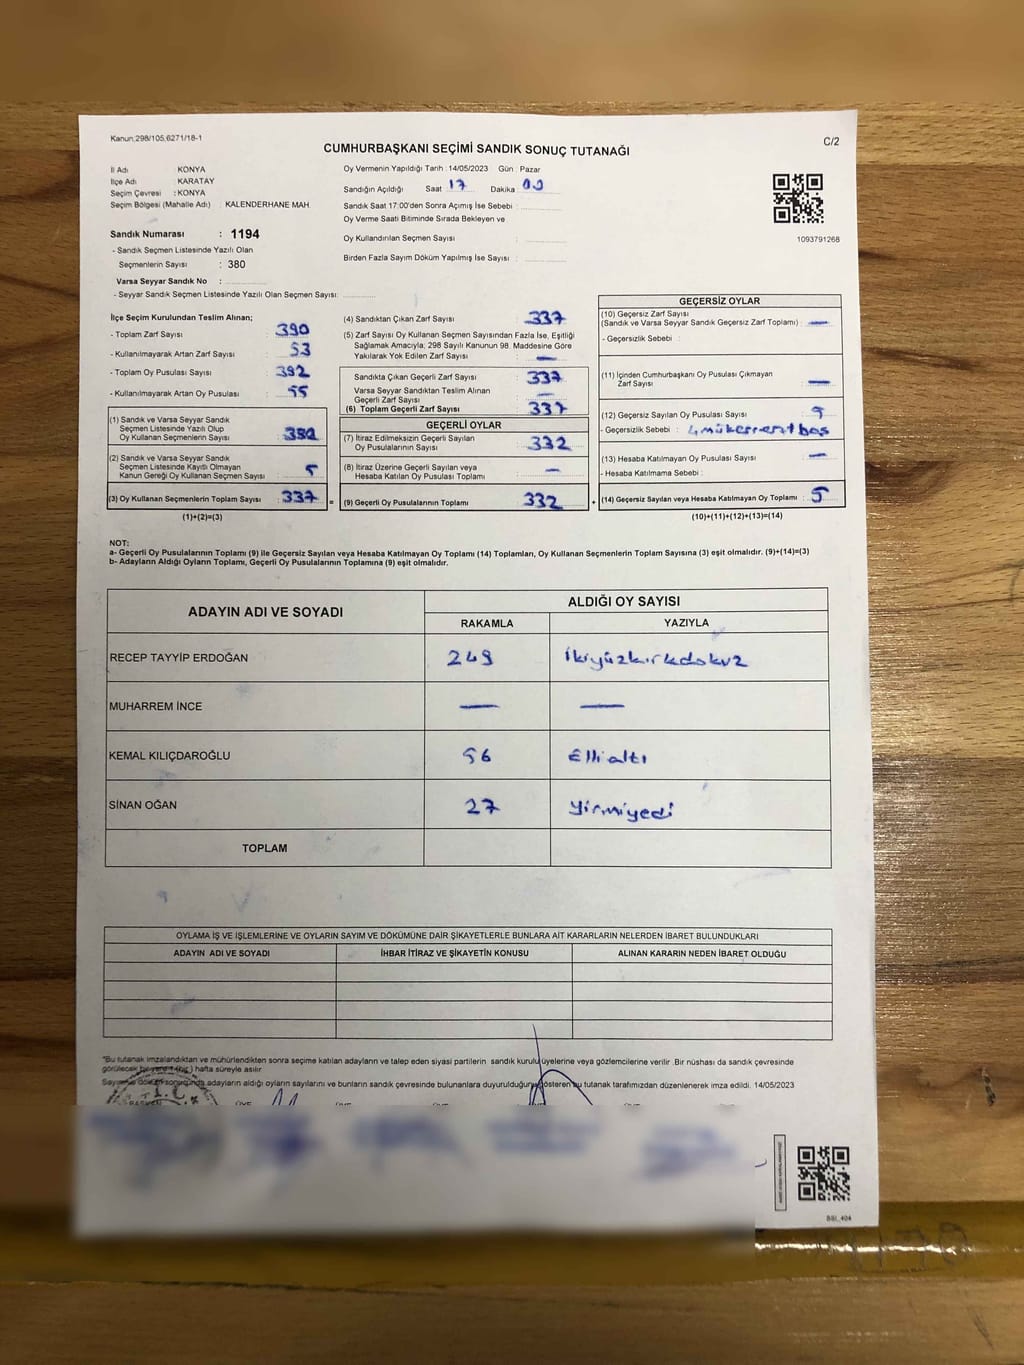 Kanun:298/105,6271/18-1
C/2
CUMHURBAŞKANI SEÇİMİ SANDIK SONUÇ TUTANAĞI
İl Adı : KONYA
İlçe Adı : KARATAY
Seçim Çevresi : KONYA
Seçim Bölgesi (Mahalle Adı) : KALENDERHANE MAH.
Oy Vermenin Yapıldığı Tarih : 14/05/2023 Gün : Pazar
Sandığın Açıldığı Saat : 17 Dakika : 00
Sandık Saat 17:00'den Sonra Açımış İse Sebebi :
Oy Verme Saati Bitiminde Sırada Bekleyen ve
Oy Kullandırılan Seçmen Sayısı :
Birden Fazla Sayım Döküm Yapılmış İse Sayısı :
1093791268
Sandık Numarası : 1194
- Sandık Seçmen Listesinde Yazılı Olan
Seçmenlerin Sayısı : 380
Varsa Seyyar Sandık No :
- Seyyar Sandık Seçmen Listesinde Yazılı Olan Seçmen Sayısı:
İlçe Seçim Kurulundan Teslim Alınan;
- Toplam Zarf Sayısı : 390
- Kullanılmayarak Artan Zarf Sayısı : 53
- Toplam Oy Pusulası Sayısı : 392
- Kullanılmayarak Artan Oy Pusulası : 55
(1) Sandık ve Varsa Seyyar Sandık
Seçmen Listesinde Yazılı Olup
Oy Kullanan Seçmenlerin Sayısı :
(2) Sandık ve Varsa Seyyar Sandık
Seçmen Listesinde Kayıtlı Olmayan
Kanun Gereği Oy Kullanan Seçmen Sayısı : 5
(3) Oy Kullanan Seçmenlerin Toplam Sayısı : 337
(1)+(2)=(3)
(4) Sandıktan Çıkan Zarf Sayısı : 337
(5) Zarf Sayısı Oy Kullanan Seçmen Sayısından Fazla İse, Eşitliği
Sağlamak Amacıyla; 298 Sayılı Kanunun 98. Maddesine Göre
Yakılarak Yok Edilen Zarf Sayısı : —
Sandıkta Çıkan Geçerli Zarf Sayısı : 337
Varsa Seyyar Sandıktan Teslim Alınan
Geçerli Zarf Sayısı : —
(6) Toplam Geçerli Zarf Sayısı : 337
GEÇERLİ OYLAR
(7) İtiraz Edilmeksizin Geçerli Sayılan
Oy Pusulalarının Sayısı : 332
(8) İtiraz Üzerine Geçerli Sayılan veya
Hesaba Katılan Oy Pusulası Toplamı : —
(9) Geçerli Oy Pusulalarının Toplamı : 332
GEÇERSİZ OYLAR
(10) Geçersiz Zarf Sayısı
(Sandık ve Varsa Seyyar Sandık Geçersiz Zarf Toplamı) : —
- Geçersizlik Sebebi :
(11) İçinden Cumhurbaşkanı Oy Pusulası Çıkmayan
Zarf Sayısı : —
(12) Geçersiz Sayılan Oy Pusulası Sayısı :
- Geçersizlik Sebebi : 4 mükerrer 1 boş
(13) Hesaba Katılmayan Oy Pusulası Sayısı : —
- Hesaba Katılmama Sebebi :
(14) Geçersiz Sayılan veya Hesaba Katılmayan Oy Toplamı : 5
(10)+(11)+(12)+(13)=(14)
NOT:
a- Geçerli Oy Pusulalarının Toplamı (9) ile Geçersiz Sayılan veya Hesaba Katılmayan Oy Toplamı (14) Toplamları, Oy Kullanan Seçmenlerin Toplam Sayısına (3) eşit olmalıdır. (9)+(14)=(3)
b- Adayların Aldığı Oyların Toplamı, Geçerli Oy Pusulalarının Toplamına (9) eşit olmalıdır.
ADAYIN ADI VE SOYADI
ALDIĞI OY SAYISI
RAKAMLA YAZIYLA
RECEP TAYYİP ERDOĞAN 249 ikiyüzkırkdokuz
MUHARREM İNCE — —
KEMAL KILIÇDAROĞLU 56 Elli altı
SİNAN OĞAN 27 yirmiyedi
TOPLAM
OYLAMA İŞ VE İŞLEMLERİNE VE OYLARIN SAYIM VE DÖKÜMÜNE DAİR ŞİKAYETLERLE BUNLARA AİT KARARLARIN NELERDEN İBARET BULUNDUKLARI
ADAYIN ADI VE SOYADI İHBAR İTİRAZ VE ŞİKAYETİN KONUSU ALINAN KARARIN NEDEN İBARET OLDUĞU
"Bu tutanak imzalandıktan ve mühürlendikten sonra seçime katılan adayların ve talep eden siyasi partilerin sandık kurulu üyelerine veya gözlemcilerine verilir .Bir nüshası da sandık çevresinde
görülecek bir yere 1 (bir) hafta süreyle asılır
Sayım ve döküm sonucunda adayların aldığı oyların sayılarını ve bunların sandık çevresinde bulunanlara duyurulduğunu gösteren bu tutanak tarafımızdan düzenlenerek imza edildi. 14/05/2023
T.C.
BSI_404